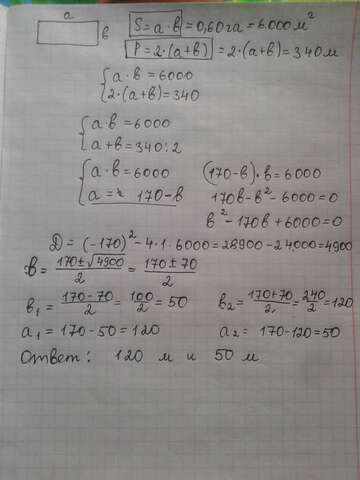 a
в S = a · в = 0,60 га = 6.000 м²
P = 2 · (a+в) = 2 · (a+в) = 340 м
{ a · в = 6000
2 · (a+в) = 340
{ a · в = 6000
a + в = 340 : 2
{ a · в = 6000 (170-в) · в = 6000
a = 170 - в 170в - в² - 6000 = 0
в² - 170в + 6000 = 0
D = (-170)² - 4 · 1 · 6000 = 28900 - 24000 = 4900
в = (170 ± √4900)/2 = (170 ± 70)/2
в₁ = (170-70)/2 = 100/2 = 50 в₂ = (170+70)/2 = 240/2 = 120
a₁ = 170 - 50 = 120 a₂ = 170 - 120 = 50
Ответ: 120 м и 50 м